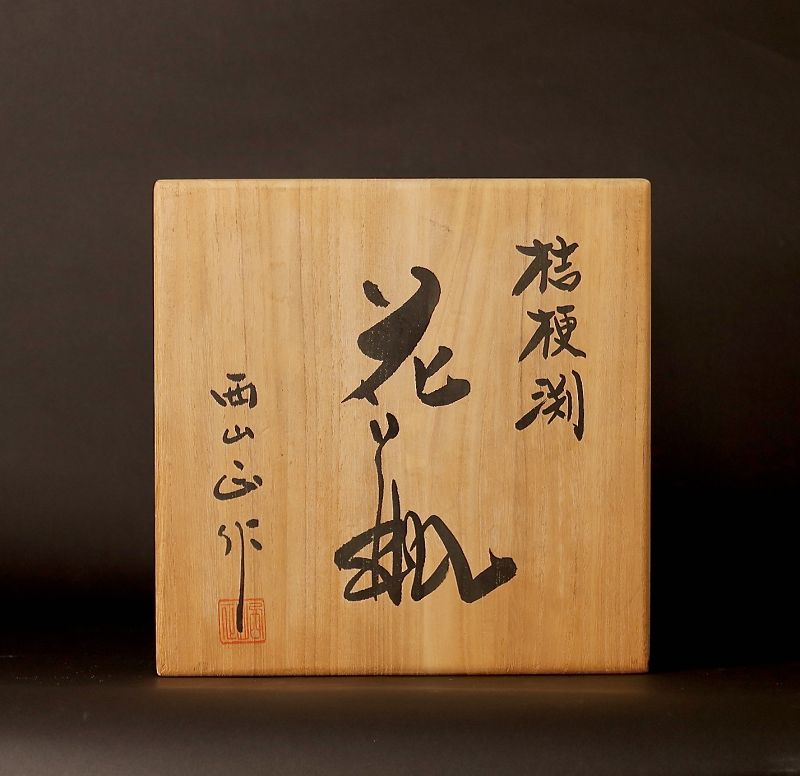 桔梗渕
花瓶
西山正作